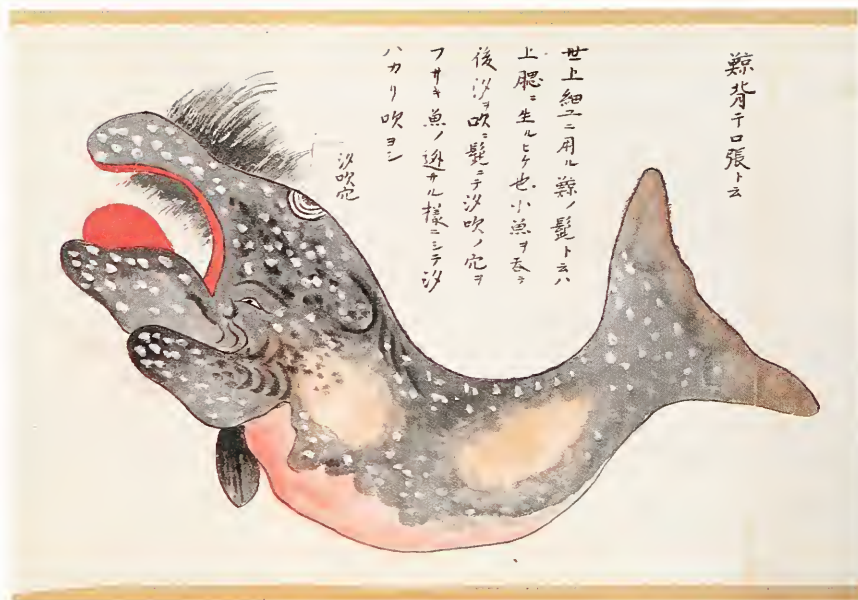 鯨背テロ張ト云
世上細工ニ用ル鯨ノ髭ト云ハ
上腮ニ生ルヒケ也小魚ヲ呑テ
後汐ヲ吹ニ髭ニテ汐吹ノ穴ヲ
フサキ魚ノ逃サル様ニシテ汐
ハカリ吹ヨシ
汐吹穴